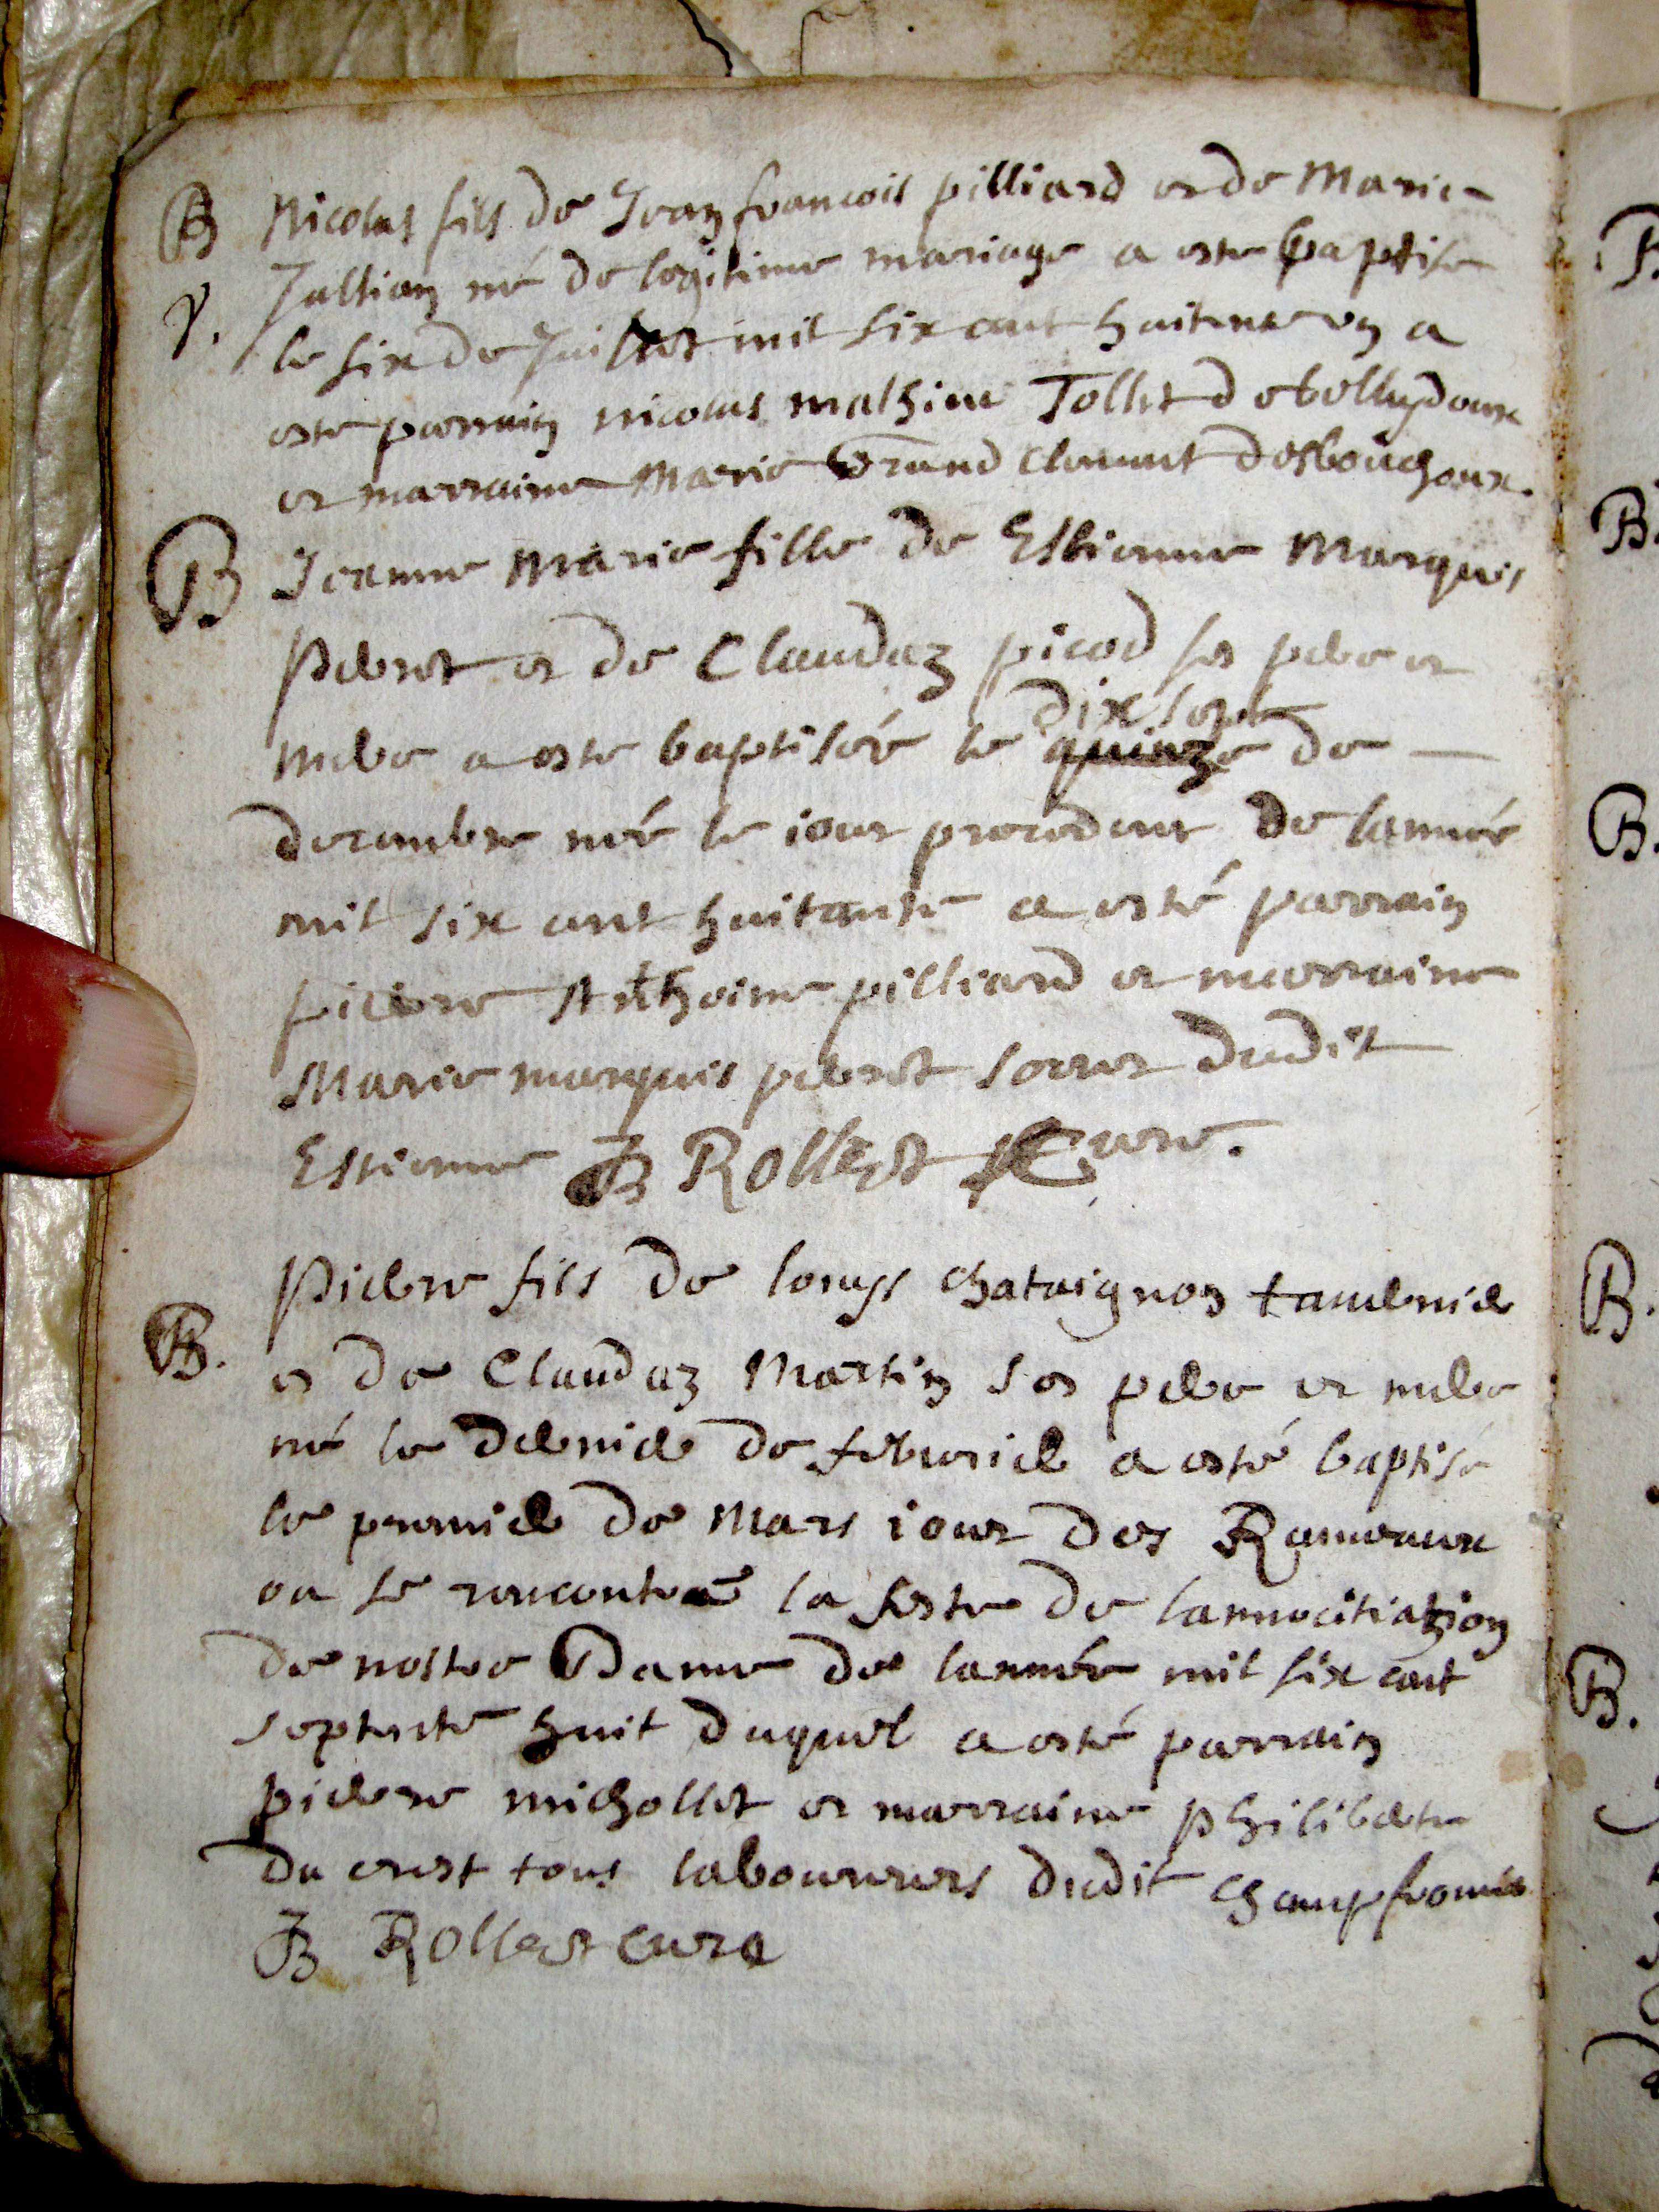 B Nicolas fils de Jean francois pilliard et de Marie
Jullian né de legitime mariage a este baptise
y. le six de Juillet mil six cent huitante en a
este parrain nicolas mathieu Tollet de belleydoux
et marraine Marie Grand Clement desbouchoux.
B Jeanne Marie fille de Estienne Marquis
Pernet et de Claudaz picod ses pere et
mere a este baptisée le quinze dix sept de
decembre née le iour precedent de lannée
mil six cent huitante a esté parrain
pierre Anthoine pilliard et marraine
Marie marquis pernet soeur dudit
Estienne JB Rollet Cure.
Pierre fils de louys Chataignon tavernier
B. et de Claudaz Martin ses pere et mere
né le dernier de febvrier a esté baptisé
le premier de Mars iour des Rameaux
ou se rencontra la feste de lannocitiation
de nostre Dame de lannée mil six cent
septente huit duquel a esté parrain
pierre michollet et marraine philiberte
du crest tous laboureurs dudit Champfromier
JB Rollet cure
B
B.
B.
B.
B.